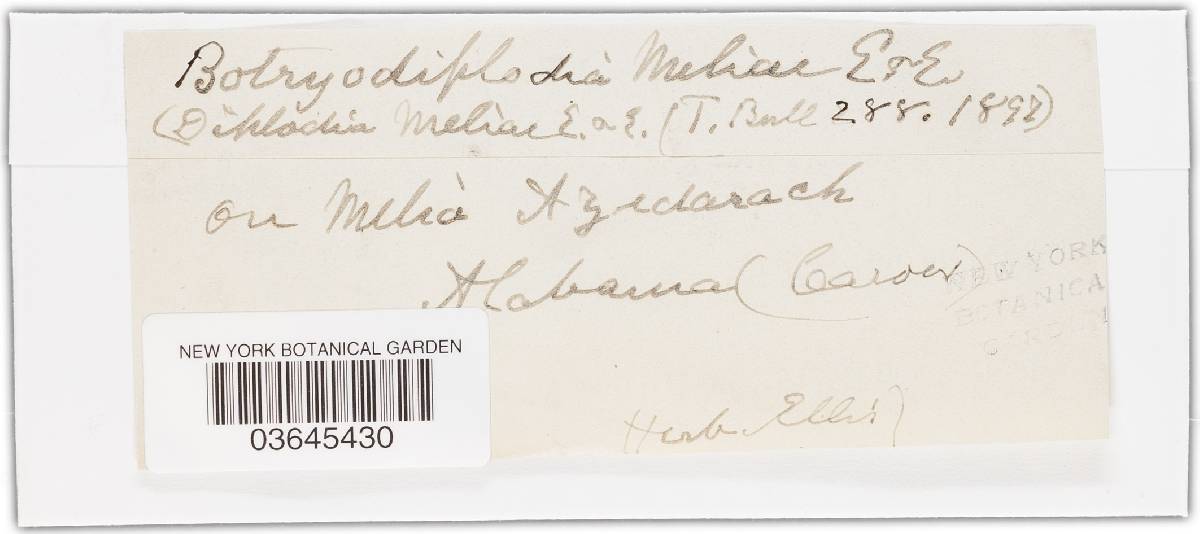 Botryodiplodia Meliae E & E
(Diplodia Meliae E. & E. (T. Bull 288. 1898)
on Melia Azedarach
Alabama (Carver)
NEW YORK
BOTANICA
GARDEN
NEW YORK BOTANICAL GARDEN
03645430
Herb. Ellis)